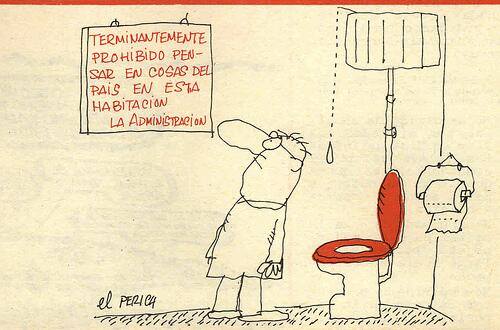 TERMINANTEMENTE
PROHIBIDO PEN-
SAR EN COSAS DEL
PAÍS EN ESTA
HABITACION
LA ADMINISTRACION
el PERICH